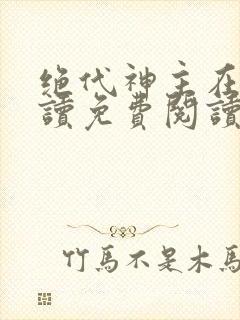 绝代神主在
讀免費閱讀
竹馬不是木馬